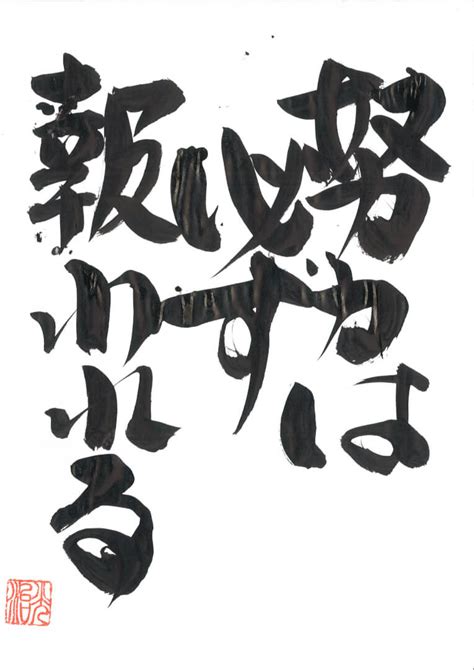 努力は
必ず
報われる